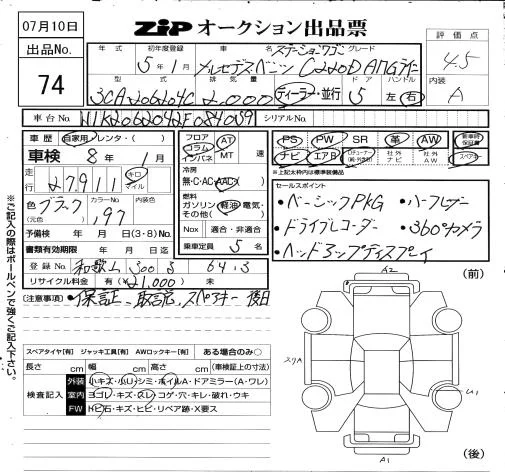 07月10日
ZIP オークション出品票
出品No.
74
年式
初年度登録
車名
グレード
評価点
5年1月
ステーションワゴン
メルセデスベンツ C220D AMGライン
4.5
型式
排気量
ドア
ハンドル
内装
3CA-206204C
2,000
ディーラー・並行
5
左 右
A
車台No.
シリアルNo.
車歴 自家用 レンタ・( )
車検 8年 1月
走行 27911 キロ マイル
色(元色) ブラック
カラーNo. 197
内装色
予備検 年 月 日(3・8)No.
書類有効期限 年 月 日迄
登録No. 和歌山 300 さ 64-3
リサイクル料金 有(¥21,000) 未
フロア コラム インパネ
AT MT 速
冷房 無・C・AC・AAC
燃料 ガソリン 軽油・電気・その他( )
Nox 適合・非適合
乗車定員 5 名
PS PW SR 革 AW 新車時保証書
ナビ エアB TVチューナー(純・外含む) 社外ナビ 社外AW スペアキー
※上記太枠内は標準装備品
セールスポイント
・ベーシックPKG ・ハーフレザー
・ドライブレコーダー ・360°カメラ
・ヘッドアップディスプレイ
(注意事項) ・保証、取説、スペアキー 後日
※ご記入の際はボールペンで強くご記入下さい。
スペアタイヤ[有] ジャッキ工具[有] AWロックキー[有] ある場合のみ○
長さ cm 幅 cm 高さ cm (車検証上の寸法)
検査記入
外装 小キズ・小U・シミ・ホイルA・ドアミラー(A・ワレ)
室内 ヨゴレ・キズ・スレ・コゲ・穴・キレ・破れ・ウキ
FW トビ石・キズ・ヒビ・リペア跡・X要ス
(前)
A2
スリA
U1
A1
(後)